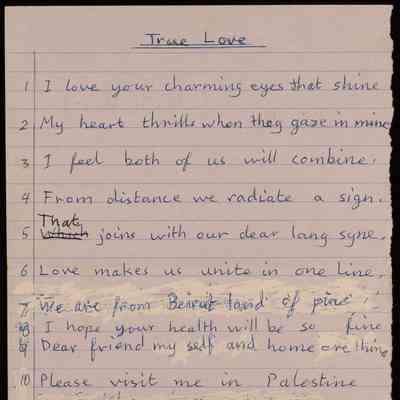 True Love
1 I love your charming eyes that shine
2 My heart thrills when they gaze in mine
3 I feel both of us will combine.
4 From distance we radiate a sign.
That
5 Which joins with our dear lang syne.
6 Love makes us unite in one line.
7 We are from Beirut land of pine!
8 I hope your health will be so fine
9 Dear friend my self and home are thine
10 Please visit me in Palestine